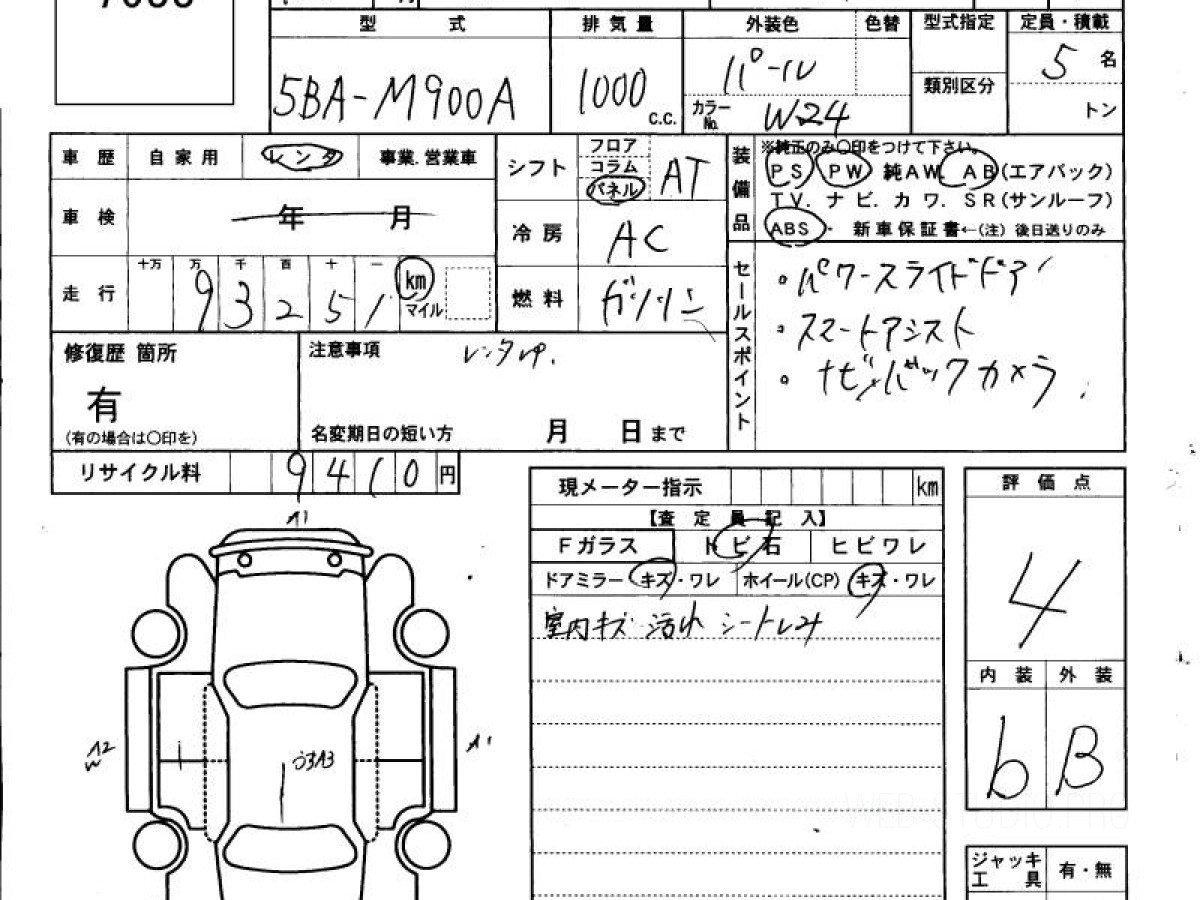 型 式 排気量 外装色 色替 型式指定 定員・積載
5BA-M900A 1000 c.c. パール 5 名
カラーNo. W24 類別区分 トン
車歴 自家用 レンタ 事業.営業車 シフト フロア コラム パネル AT
装備品 ※純正のみ○印をつけて下さい。
PS PW 純AW. AB(エアバック)
TV. ナビ. カワ. SR(サンルーフ)
ABS・ 新車保証書←(注) 後日送りのみ
車検 年 月 冷房 AC
走行 十万 万 千 百 十 一
93251 km マイル 燃料 ガソリン
セールスポイント
・パワースライドドア
・スマートアシスト
・ナビ/バックカメラ
修復歴 箇所 注意事項
有
(有の場合は○印を) 名変期日の短い方 月 日まで
リサイクル料 9410 円
現メーター指示 km
【査定員記入】
Fガラス トビ石 ヒビワレ
ドアミラー キズ・ワレ ホイール(CP) キズ・ワレ
室内キズ
評価点
4
内装 外装
b B
A1
A2
W
A1
ジャッキ 工具 有・無